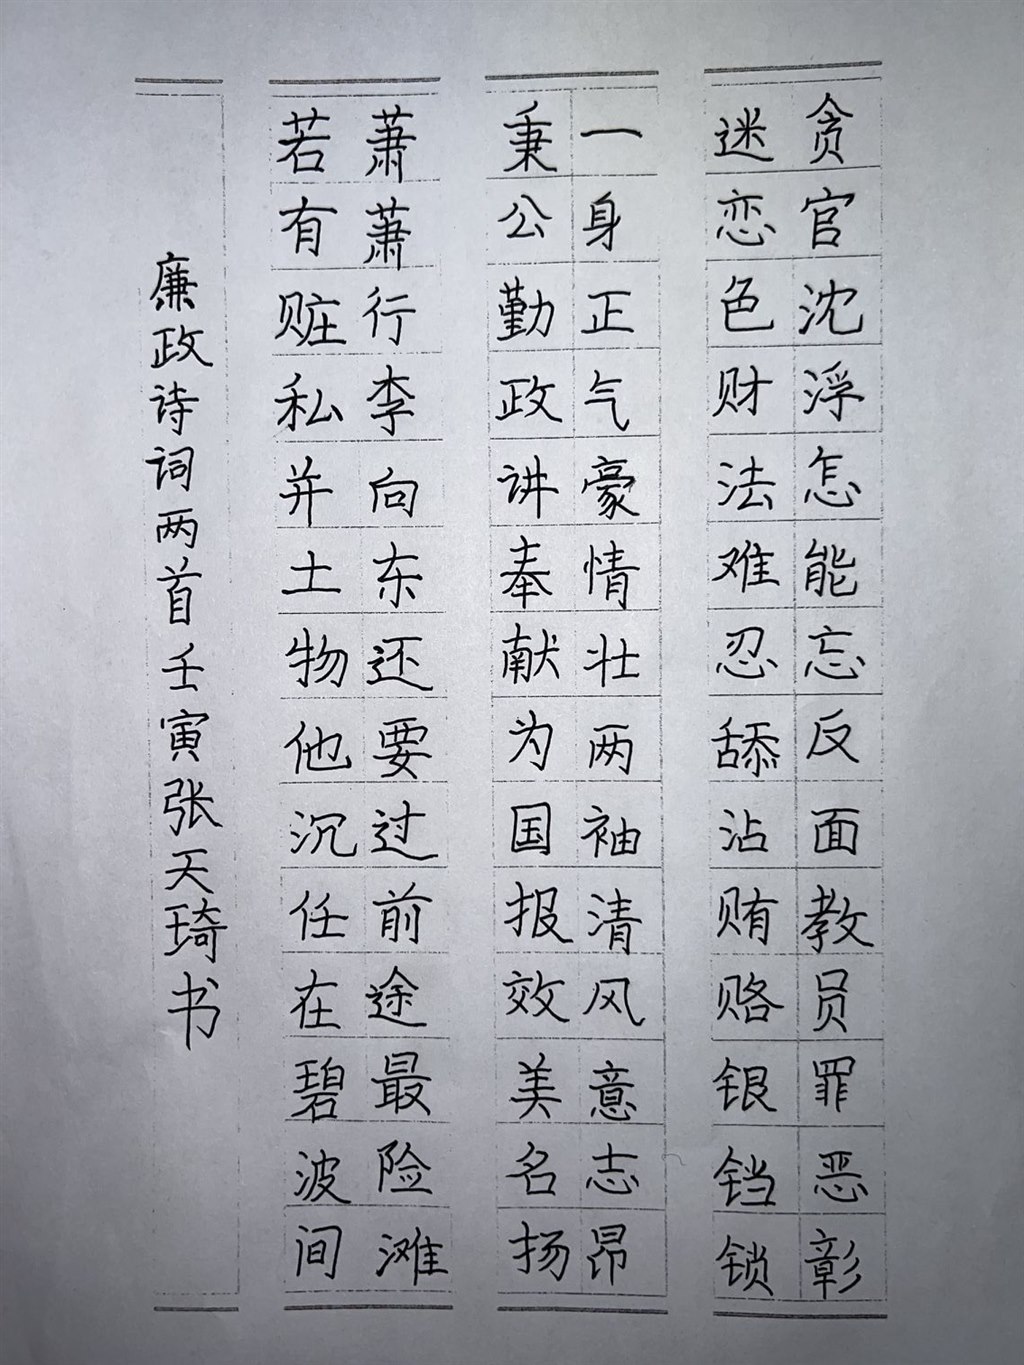 贪官沈浮怎能忘反面教员罪恶彰
迷恋色财法难忍舔沾贿赂银铛锁
一身正气豪情壮两袖清风意志昂
秉公勤政讲奉献为国报效美名扬
萧萧行李向东还要过前途最险滩
若有赃私并土物他沉任在碧波间
廉政诗词两首壬寅张天琦书